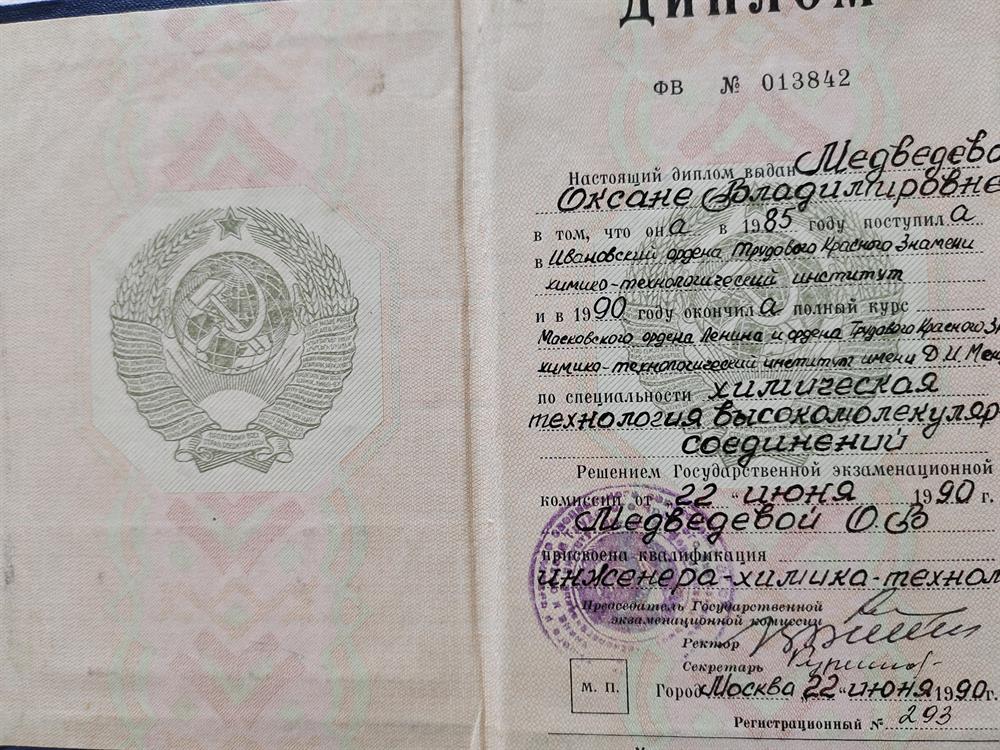 ДИПЛОМ
ФВ № 013842
Настоящий диплом выдан Медведево
Оксане Владимировне
в том, что она в 1985 году поступила
в Ивановский ордена Трудового Красного Знамени
химико-технологический институт
и в 1990 году окончила полный курс
Московского ордена Ленина и ордена Трудового Красного Зн
химико-технологический институт имени Д.И. Мен
по специальности химическая
технология высокомолекуляр
соединений
Решением Государственной экзаменационной
комиссии от "22" июня 1990 г.
Медведевой О.В
присвоена квалификация
инженера-химика-технол
Председатель Государственной
экзаменационной комиссии
Ректор
Секретарь
М. П.
Город Москва "22" июня 1990 г.
Регистрационный № 293